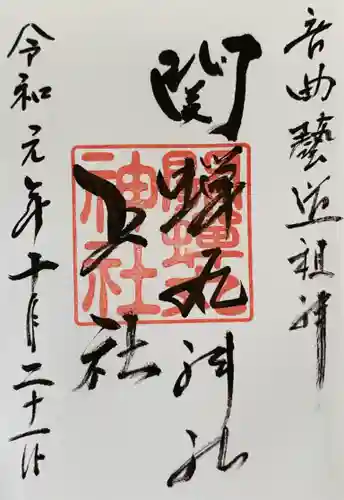 音曲藝道祖神
関蝉丸神社
上社
令和元年十月二十一日
関蝉丸神社